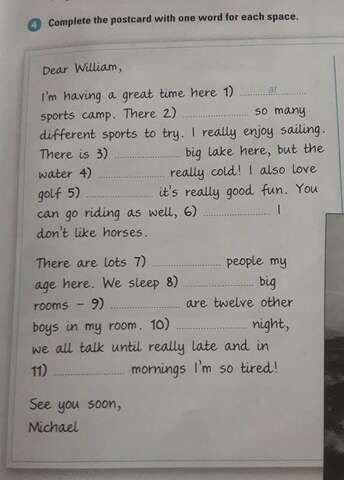 4 Complete the postcard with one word for each space.
Dear William,
I'm having a great time here 1) at
sports camp. There 2) ........................ so many
different sports to try. I really enjoy sailing.
There is 3) ........................ big lake here, but the
water 4) ........................ really cold! I also love
golf 5) ........................ it's really good fun. You
can go riding as well, 6) ........................ I
don't like horses.
There are lots 7) ........................ people my
age here. We sleep 8) ........................ big
rooms – 9) ........................ are twelve other
boys in my room. 10) ........................ night,
we all talk until really late and in
11) ........................ mornings I'm so tired!
See you soon,
Michael